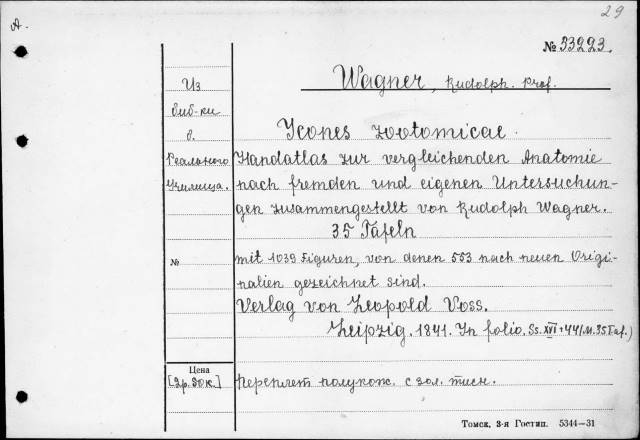 A.
29
№ 33223.
Wagner, Rudolph. Prof.
Из
биб-ки
б.
Реального
Училища.
Icones zootomicae.
Handatlas zur vergleichenden Anatomie
nach fremden und eigenen Untersuchun-
gen zusammengestellt von Rudolph Wagner.
35 Tafeln
№
mit 1039 Figuren, von denen 553 nach neuen Origi-
nalien gezeichnet sind.
Verlag von Leopold Voss.
Leipzig. 1841. In folio. Ss. XVI + 44 (M. 35 Taf.)
Цена
[2р. 50к.]
Переплет полукож. с зол. тисн.
Томск, 3-я Гостип. 5344—31